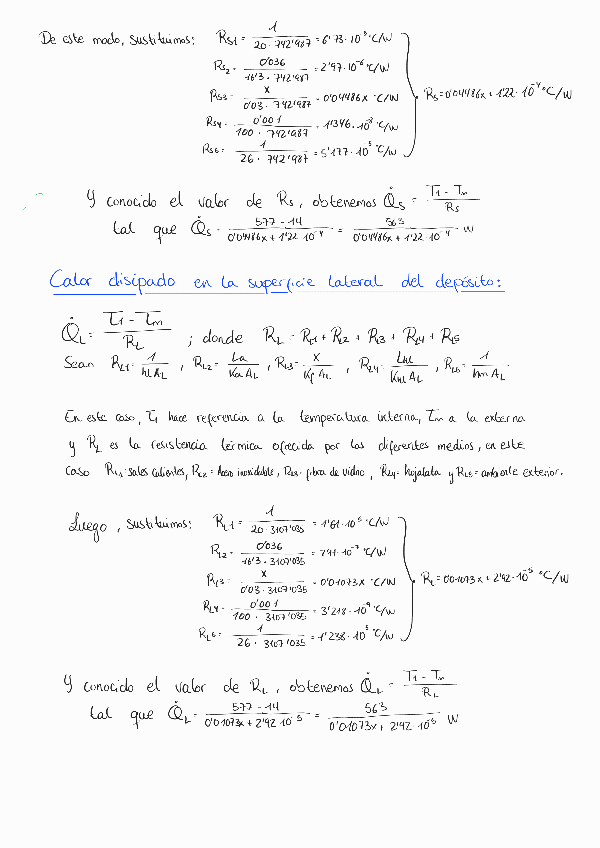 De este modo, sustituimos: Rs1 = 1 / 20 · 742'987 = 6'73 · 10⁻⁵ °C/W
Rs2 = 0'036 / 16'3 · 742'987 = 2'97 · 10⁻⁶ °C/W
Rs3 = x / 0'03 · 742'987 = 0'04486x °C/W
Rs = 0'04486x + 1'22 · 10⁻⁴ °C/W
Rs4 = 0'001 / 100 · 742'987 = 1'346 · 10⁻⁸ °C/W
Rs5 = 1 / 26 · 742'987 = 5'177 · 10⁻⁵ °C/W
Y conocido el valor de Rs, obtenemos Q̇s = T1 - T∞ / Rs
tal que Q̇s = 577 - 14 / 0'04486x + 1'22 · 10⁻⁴ = 563 / 0'04486x + 1'22 · 10⁻⁴ W
Calor disipado en la superficie lateral del depósito:
Q̇L = T1 - T∞ / RL ; donde RL = RL1 + RL2 + RL3 + RL4 + RL5
Sean RL1 = 1 / hL AL , RL2 = La / Ka AL , RL3 = x / Kf AL , RL4 = LHL / KHL AL , RL5 = 1 / h∞ AL
En este caso, T1 hace referencia a la temperatura interna, T∞ a la externa
y RL es la resistencia térmica ofrecida por los diferentes medios, en este
caso RL1 = sales calientes, RL2 = Acero inoxidable, RL3 = fibra de vidrio, RL4 = hojalata y RL5 = ambiente exterior.
Luego, sustituimos: RL1 = 1 / 20 · 3107'035 = 1'61 · 10⁻⁵ °C/W
RL2 = 0'036 / 16'3 · 3107'035 = 7'11 · 10⁻⁷ °C/W
RL3 = x / 0'03 · 3107'035 = 0'01073x °C/W
RL = 0'01073x + 2'92 · 10⁻⁵ °C/W
RL4 = 0'001 / 100 · 3107'035 = 3'218 · 10⁻⁹ °C/W
RL5 = 1 / 26 · 3107'035 = 1'238 · 10⁻⁵ °C/W
Y conocido el valor de RL, obtenemos Q̇L = T1 - T∞ / RL
tal que Q̇L = 577 - 14 / 0'01073x + 2'92 · 10⁻⁵ = 563 / 0'01073x + 2'92 · 10⁻⁵ W